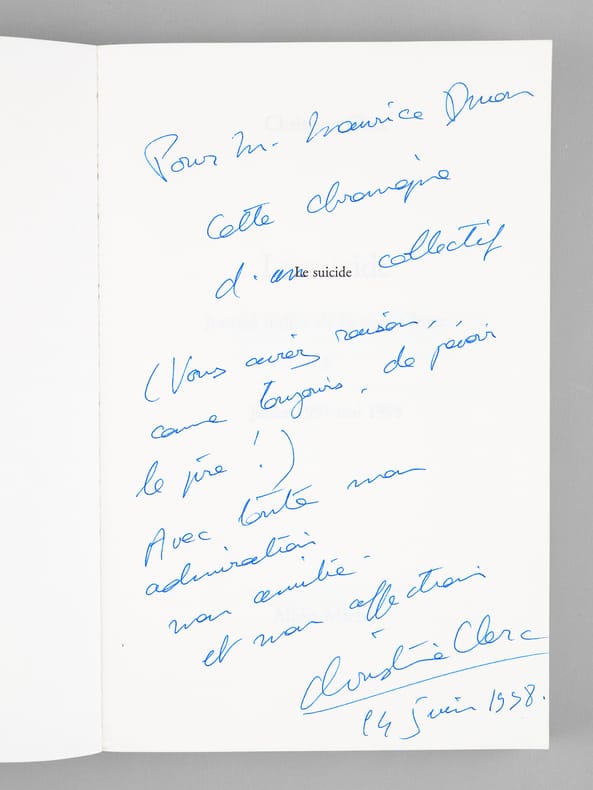 Pour M. Maurice Druon
Cette chronique
d'un Le suicide collectif
(Vous aviez raison,
comme toujours, de prévoir
le pire !)
Avec toute mon
admiration
mon amitié
et mon affection
Christine Clerc
14 juin 1998.